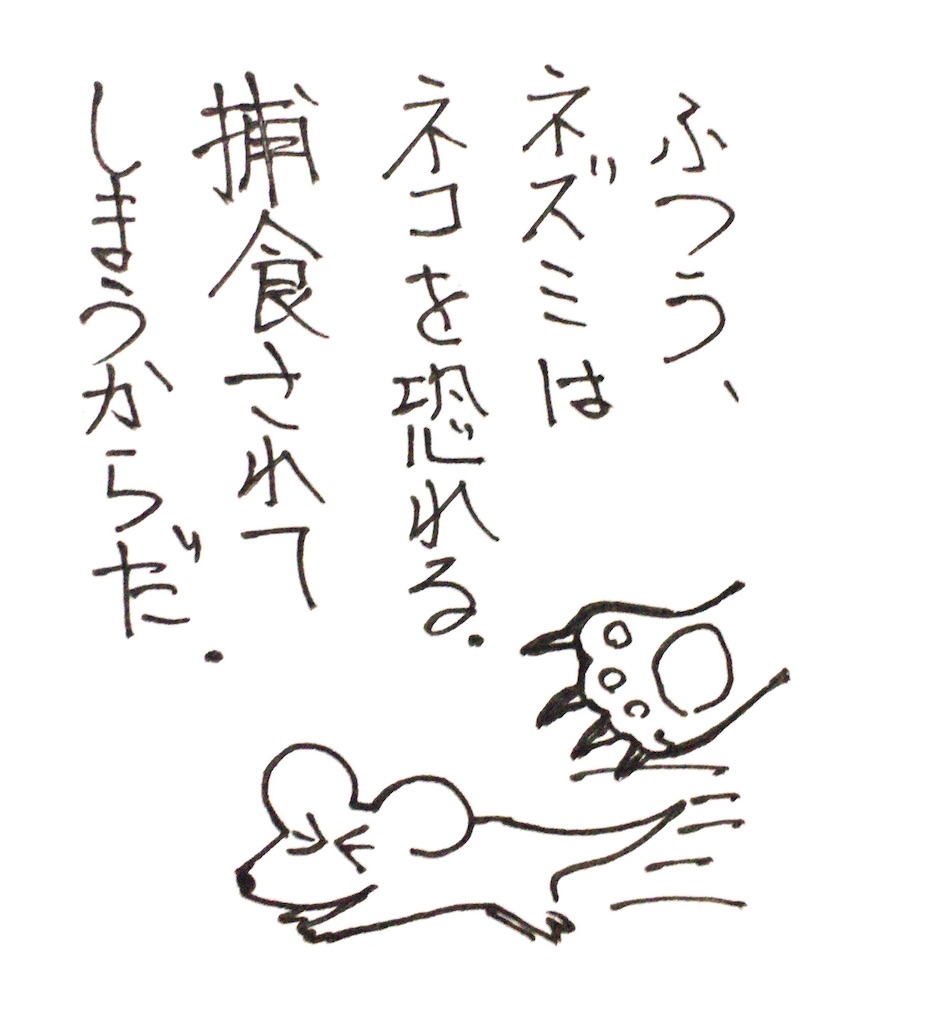 ふつう、
ネズミは
ネコを恐れる.
捕食されて
しまうからだ.